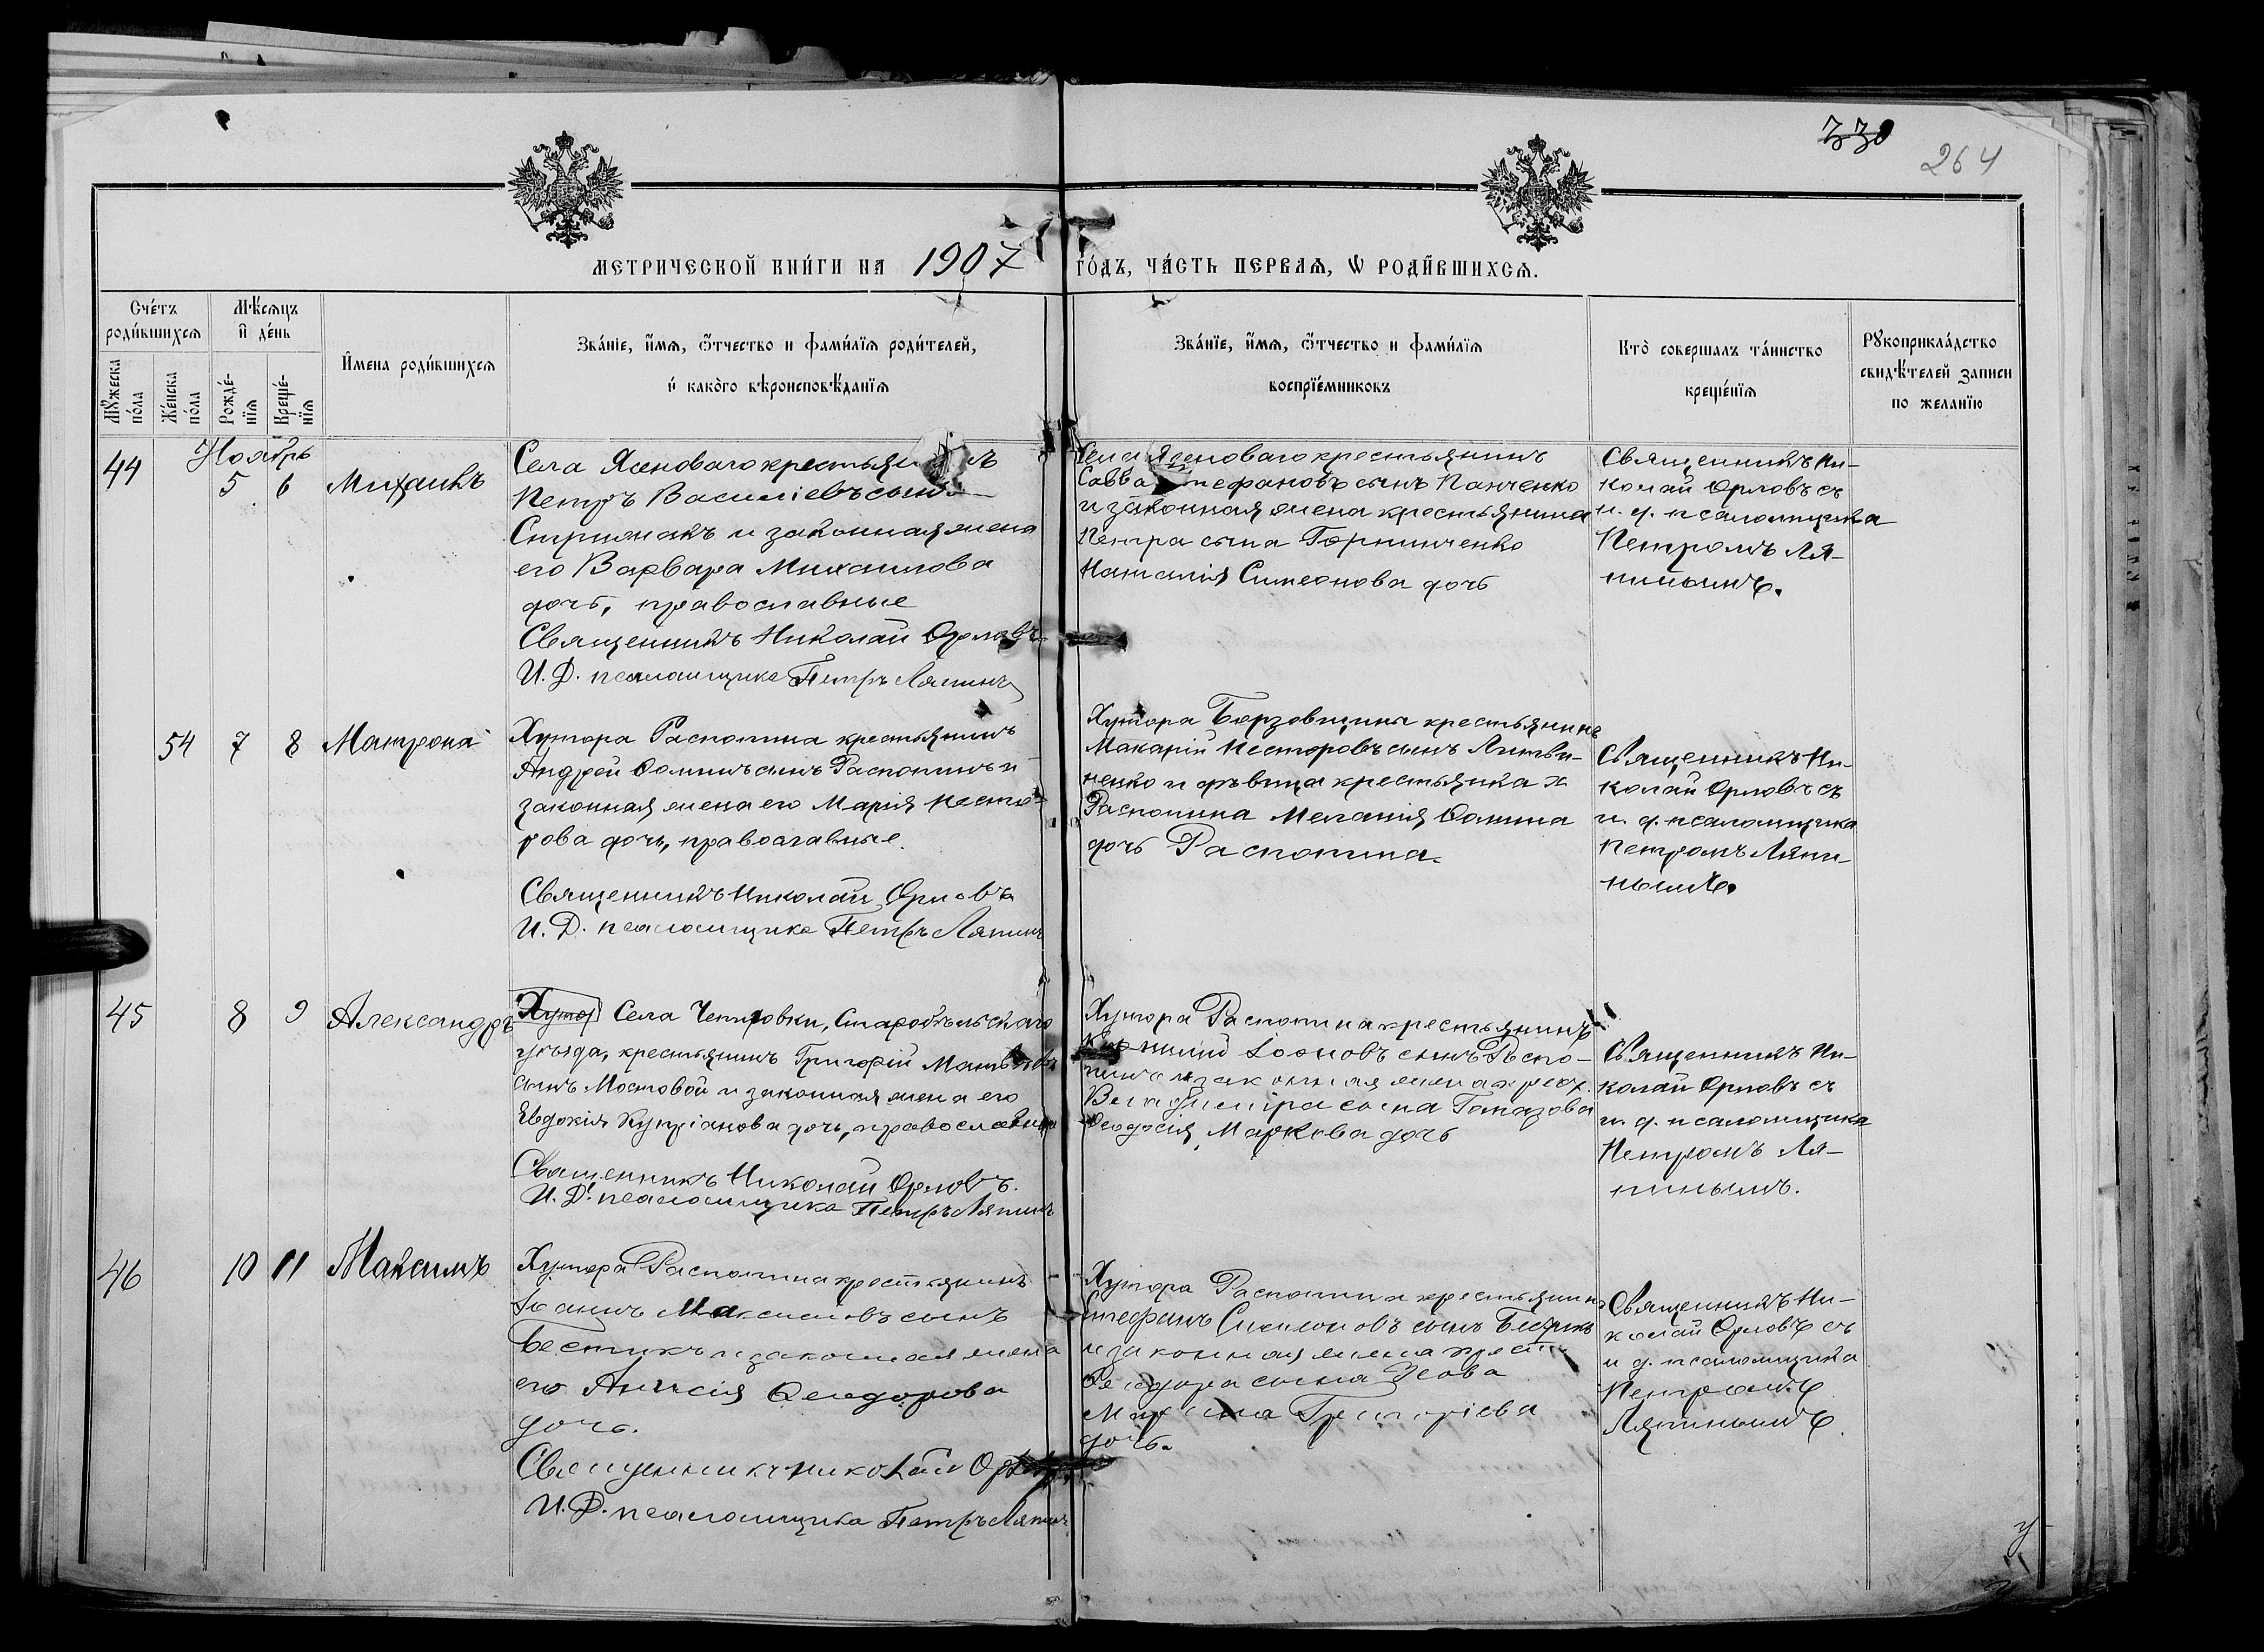 330
264
МЕТРИЧЕСКОЙ КНИ́ГИ НА 1907 ГО́ДЪ, ЧА́СТЬ ПЕРВАЯ, Ѡ РОДИ́ВШИХСЯ.
Сче́тъ
роди́вшихся
Му́жеска
по́ла
Же́нска
по́ла
Мѣ́сяцъ
и де́нь
Рожде́-
нїя
Креще́-
нїя
Имена роди́вшихся
Зва́нїе, и́мя, о́тчество и фами́лїя роди́телей,
и како́го вѣроисповѣ́данїя
Зва́нїе, и́мя, о́тчество и фами́лїя
воспрїе́мниковъ
Кто̀ соверша́лъ та́инство
креще́нїя
Рукоприкла́дство
свидѣ́телей записи
по желанїю
Ноябрь
44
5 6 Михаилъ
Села Ясеноваго
Петръ Василіевъ сынъ
и законная жена
его Варвара Михаилова
дочь, православные
Священникъ Николай Орловъ
И. Д. псаломщика Петръ Ляпинъ
Села Ясеноваго крестьянинъ
Савва Стефановъ сынъ Панченко
и законная жена крестьянина
Петра сына Горпинченко
Наталія Симеонова дочь
Священникъ Ни-
колай Орловъ съ
и. д. псаломщика
Петромъ Ля-
пинымъ.
54 7 8 Матрона
Хутора Распопина крестьянинъ
Андрей Фоминъ сынъ Распопинъ и
законная жена его Марія Несто-
рова дочь, православные.
Священникъ Николай Орловъ
И. Д. псаломщика Петръ Ляпинъ
Хутора Борзовщины крестьянинъ
Макарій Несторовъ сынъ Литви-
ненко и дѣвица крестьянка х
Распопина Меланія Фомина
дочь Распопина.
Священникъ Ни-
колай Орловъ съ
и. д. псаломщика
Петромъ Ляпи-
нымъ.
45 8 9 Александръ
Хутор Села Старобѣльскаго
уѣзда, крестьянинъ Григорій Матвѣевъ
сынъ Мостовой и законная жена его
Евдокія Купріанова дочь, православные
Священникъ Николай Орловъ.
И. Д. псаломщика Петръ Ляпинъ
Хутора Распопина крестьянинъ
Іоановъ сынъ Распо-
пинъ и законная жена крест.
Владиміра сына
Феодосія Маркова дочь
Священникъ Ни-
колай Орловъ съ
и. д. псаломщика
Петромъ Ля-
пинымъ.
46 10 11 Максимъ
Хутора Распопина крестьянинъ
Іоаннъ Максимовъ сынъ
Бестикъ и законная жена
его Анисія Феодорова
дочь.
Священникъ Николай Орловъ
И. Д. псаломщика Петръ Ляпинъ
Хутора Распопина крестьянинъ
Стефанъ сынъ
и законная жена крест.
сына
Григоріева
дочь.
Священникъ Ни-
колай Орловъ съ
и д. псаломщика
Петромъ
Ляпинымъ.